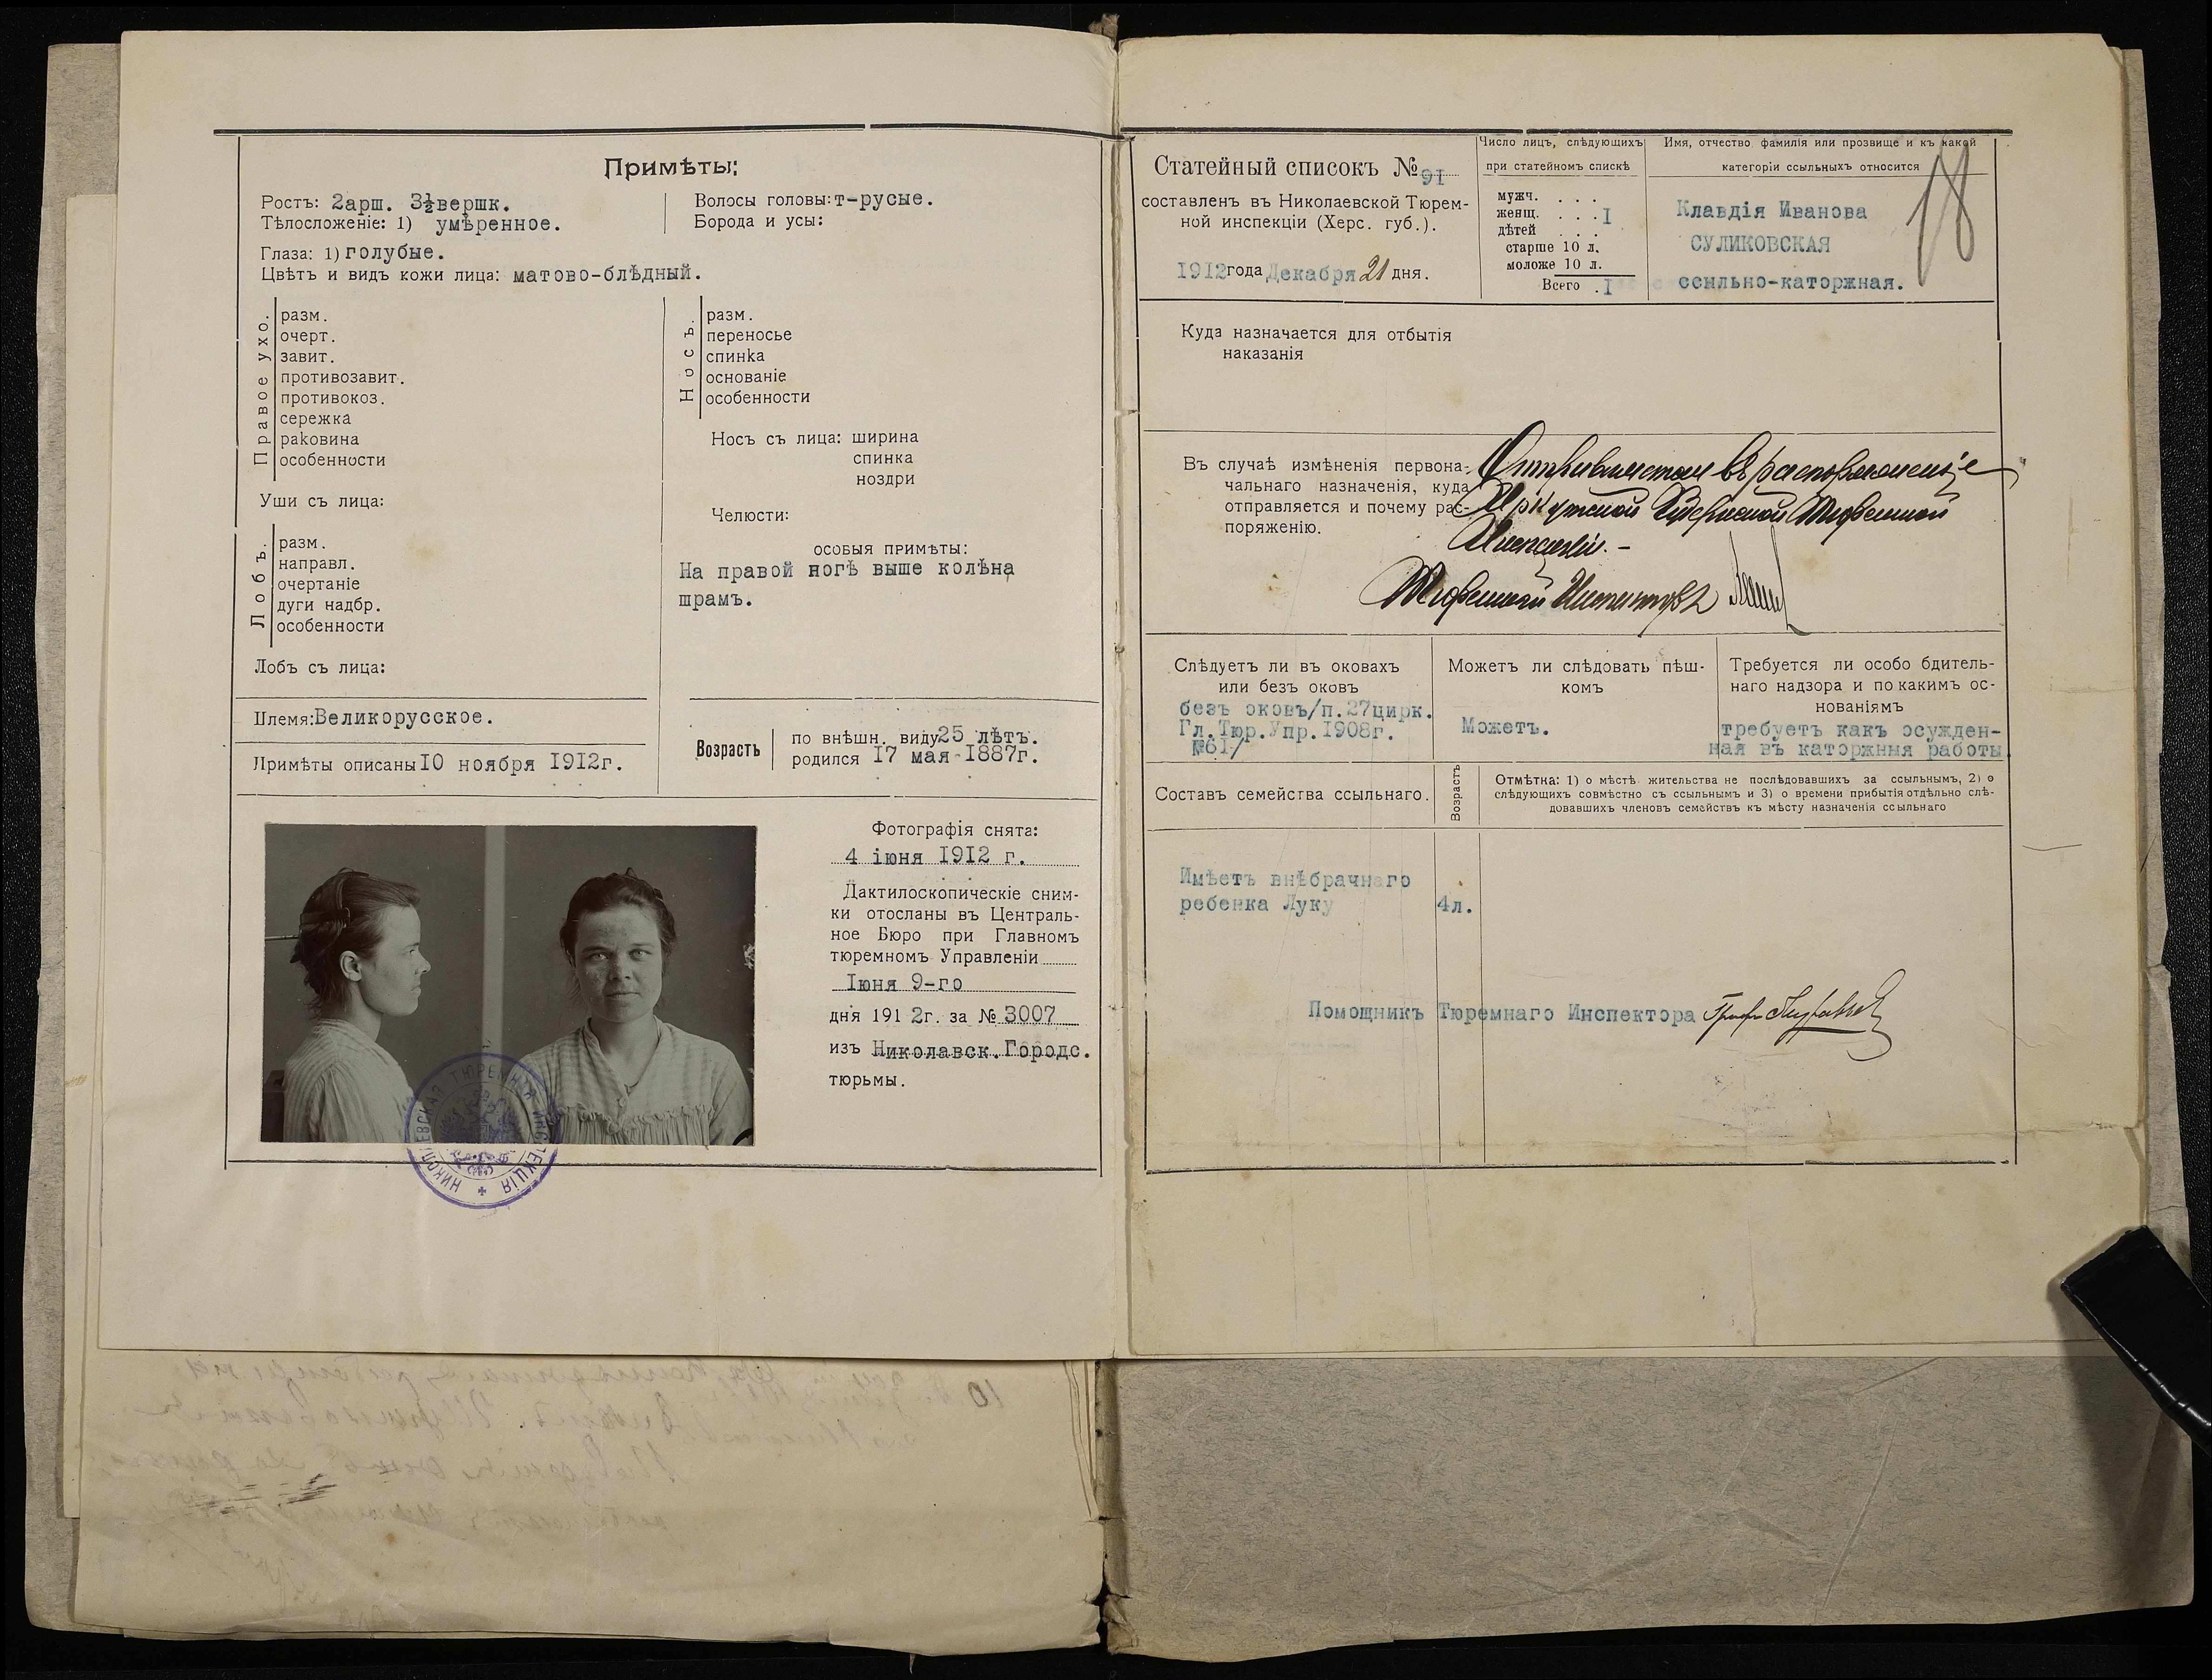 Примѣты:
Ростъ: 2арш. 3½вершк.
Тѣлосложеніе: 1) умѣренное.
Волосы головы: т-русые.
Борода и усы:
Глаза: 1) голубые.
Цвѣтъ и видъ кожи лица: матово-блѣдный.
Правое ухо.
разм.
очерт.
завит.
противозавит.
противокоз.
сережка
раковина
особенности
Носъ.
разм.
переносье
спинка
основаніе
особенности
Носъ съ лица: ширина
спинка
ноздри
Уши съ лица:
Челюсти:
Лобъ.
разм.
направл.
очертаніе
дуги надбр.
особенности
Лобъ съ лица:
особыя примѣты:
На правой ногѣ выше колѣна
шрамъ.
Племя: Великорусское.
Примѣты описаны 10 ноября 1912г.
Возрастъ
по внѣшн. виду 25 лѣтъ.
родился 17 мая-1887г.
Фотографія снята:
4 іюня 1912 г.
Дактилоскопическіе сним-
ки отосланы въ Централь-
ное Бюро при Главномъ
тюремномъ Управленіи
Іюня 9-го
дня 1912г. за № 3007
изъ Николавск. Городс.
тюрьмы.
НИКОЛАЕВСКАЯ ТЮРЕМНАЯ ИНСПЕКЦІЯ
Статейный списокъ № 91
составленъ въ Николаевской Тюрем-
ной инспекціи (Херс. губ.).
1912 года Декабря 21 дня.
Число лицъ, слѣдующихъ
при статейномъ спискѣ
мужч. . . .
женщ. . . . I
дѣтей . . .
старше 10 л.
моложе 10 л.
Всего . I
Имя, отчество фамилія или прозвище и къ какой
категоріи ссыльныхъ относится
Клавдія Иванова
СУЛИКОВСКАЯ
ссыльно-каторжная.
18
Куда назначается для отбытія
наказанія
Въ случаѣ измѣненія первона-
чальнаго назначенія, куда
отправляется и почему рас-
поряженію.
Отправляется въ распоряженіе
Иркутской Губернской Тюремной
Инспекціи. –
Тюремный Инспекторъ
Слѣдуетъ ли въ оковахъ
или безъ оковъ
безъ оковъ/п.27цирк.
Гл.Тюр.Упр.1908г.
№61/
Можетъ ли слѣдовать пѣш-
комъ
Можетъ.
Требуется ли особо бдитель-
наго надзора и по какимъ ос-
нованіямъ
требуетъ какъ осужден-
ная въ каторжныя работы
Составъ семейства ссыльнаго.
Возрастъ
Отмѣтка: 1) о мѣстѣ жительства не послѣдовавшихъ за ссыльнымъ, 2) о
слѣдующихъ совмѣстно съ ссыльнымъ и 3) о времени прибытія отдѣльно слѣ-
довавшихъ членовъ семействъ къ мѣсту назначенія ссыльнаго
Имѣетъ внѣбрачнаго
ребенка Луку
4л.
Помощникъ Тюремнаго Инспектора
10